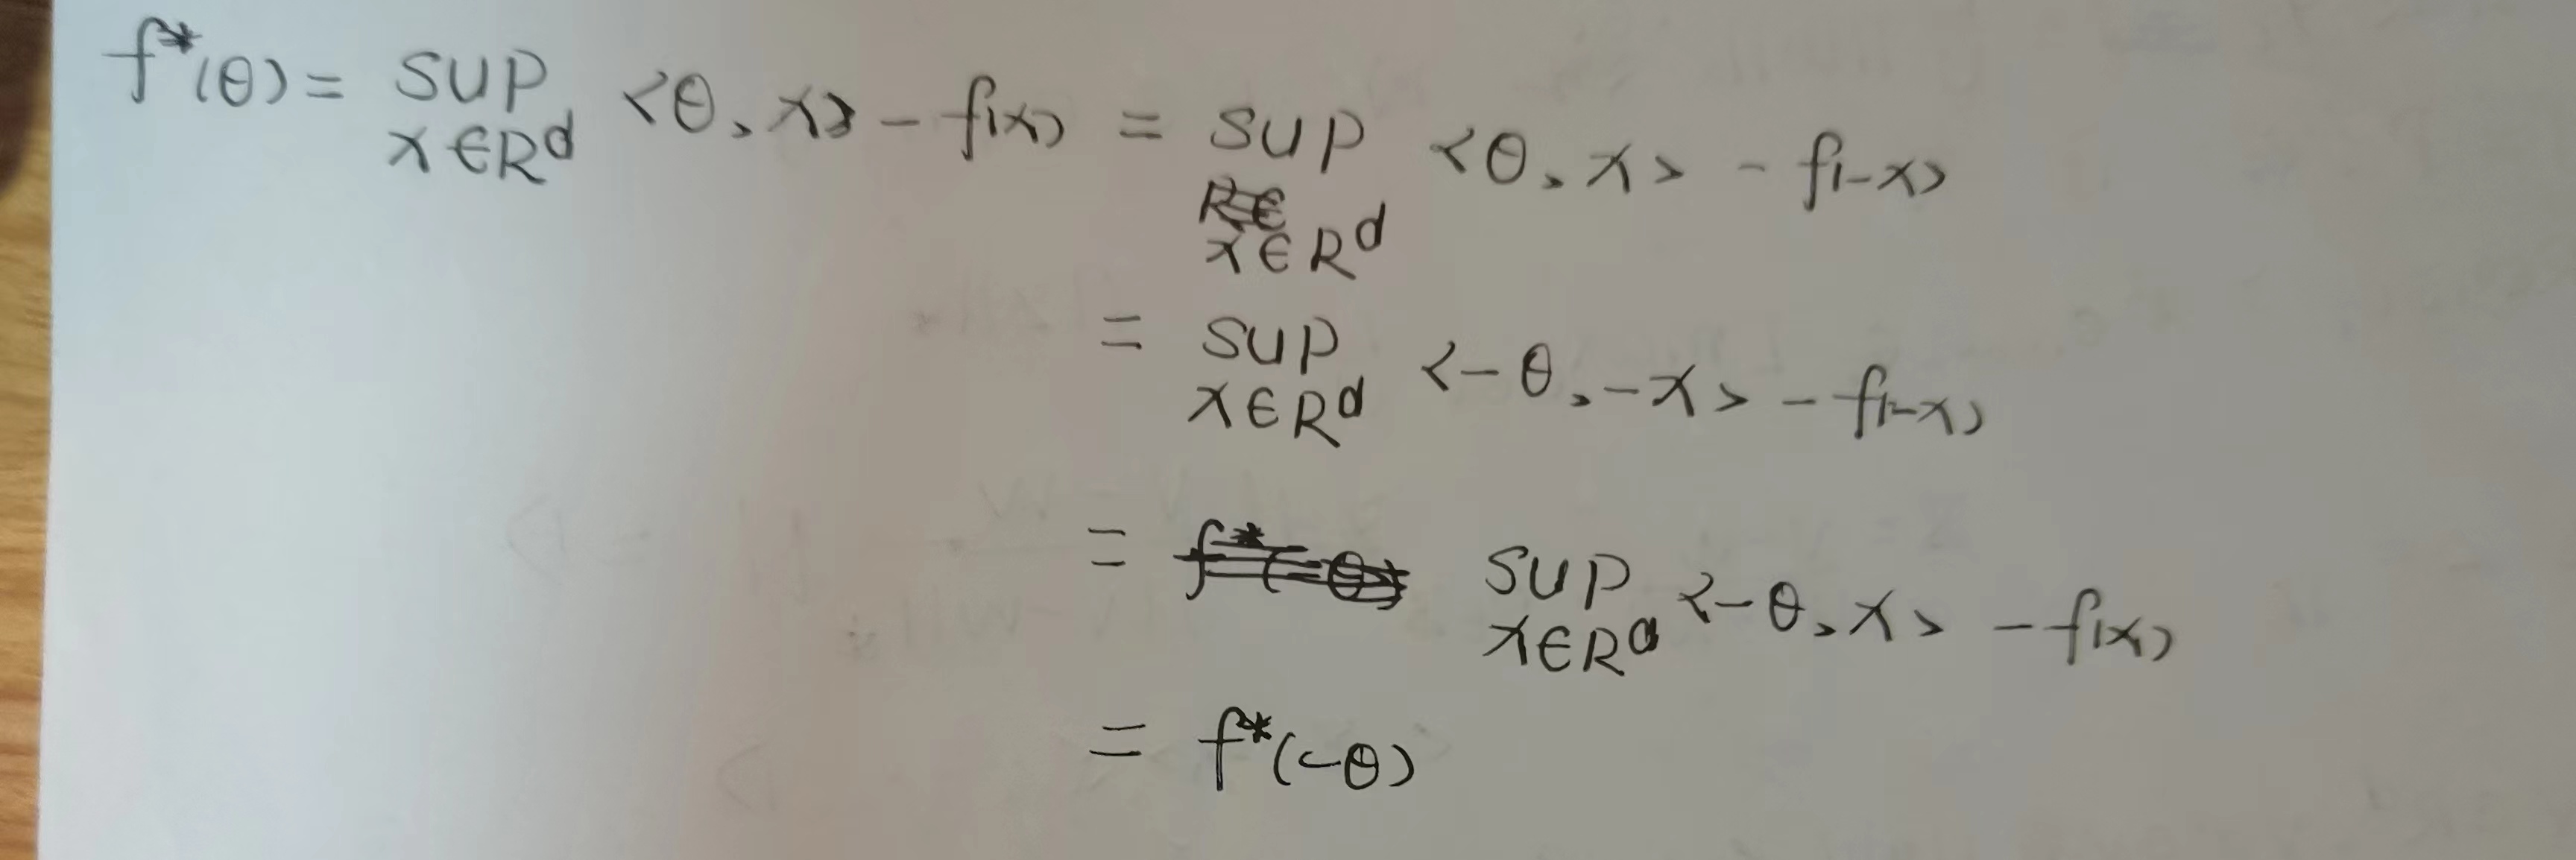 f*(θ) = sup x∈R^d <θ, x> - f(x) = sup x∈R^d <θ, x> - f(-x)
= sup x∈R^d <-θ, -x> - f(-x)
= sup x∈R^d <-θ, x> - f(x)
= f*(-θ)